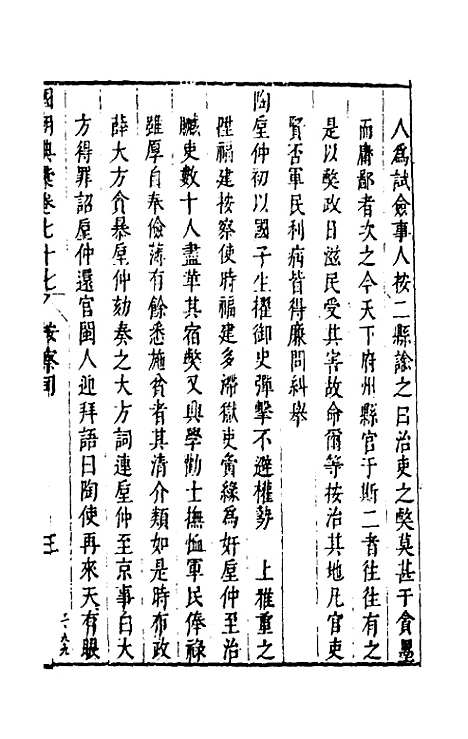 人為試僉事人按二縣諭之曰治吏之獘莫甚于貪墨
而庸鄙者次之今天下府州縣官于斯二者往往有之
是以獘政日滋民受其害故命爾等按治其地凡官吏
賢否軍民利病皆得廉問糾舉
陶垕仲初以國子生擢御史彈擊不避權勢 上雅重之
陞福建按察使時福建多滯獄吏夤緣為奸垕仲至治
贓吏數十人盡革其宿獘又興學勸士撫恤軍民俸祿
雖厚自奉儉薄有餘悉施貧者其清介類如是時布政
薛大方貪暴垕仲劾奏之大方詞連垕仲至京事白大
方得罪詔垕仲還官閩人迎拜語曰陶使再來天有眼
國朝典彙卷七十七 按察司 三